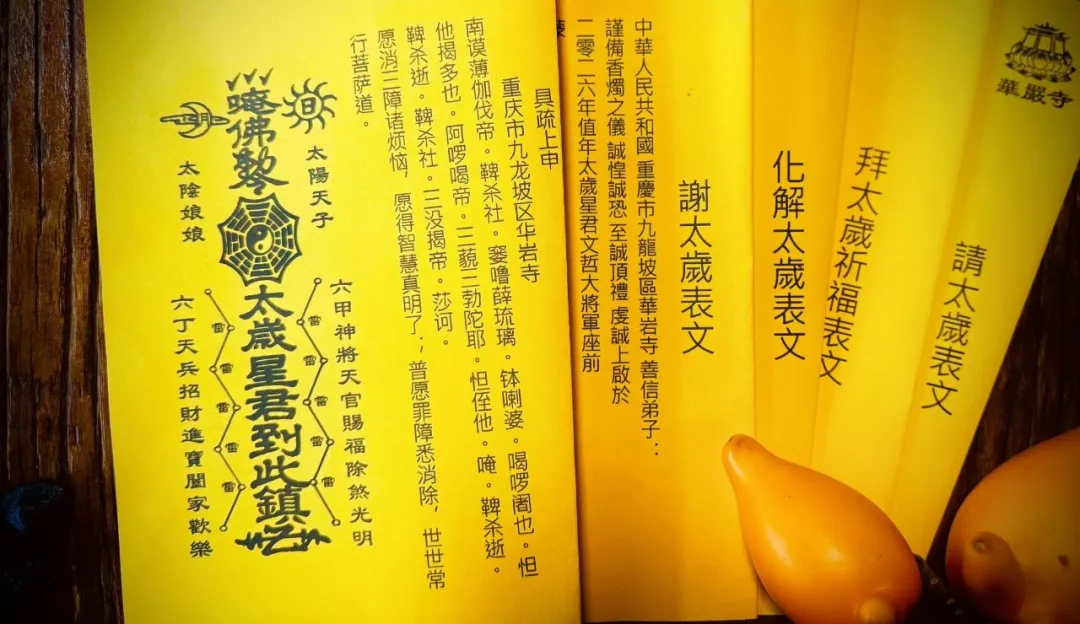 華嚴寺
請太歲表文
拜太歲祈福表文
化解太歲表文
謝太歲表文
中華人民共和國 重慶市九龍坡區華岩寺 善信弟子：
謹備香燭之儀 誠惶誠恐 至誠頂禮 虔誠上啟於
二零二六年值年太歲星君文哲大將軍座前
具疏上申
重庆市九龙坡区华岩寺
南谟薄伽伐帝。鞞杀社。窭噜薛琉璃。钵喇婆。喝啰阇也。怛
他揭多也。阿啰喝帝。三藐三勃陀耶。怛侄他。唵。鞞杀逝。
鞞杀逝。鞞杀社。三没揭帝。莎诃。
愿消三障诸烦恼，愿得智慧真明了；普愿罪障悉消除，世世常
行菩萨道。
日
太陽天子
六甲神將天官賜福除煞光明
雷雷雷雷雷
佛
太歲星君到此鎮
雷雷雷雷雷
太陰娘娘
六丁天兵招財進寶闔家歡樂